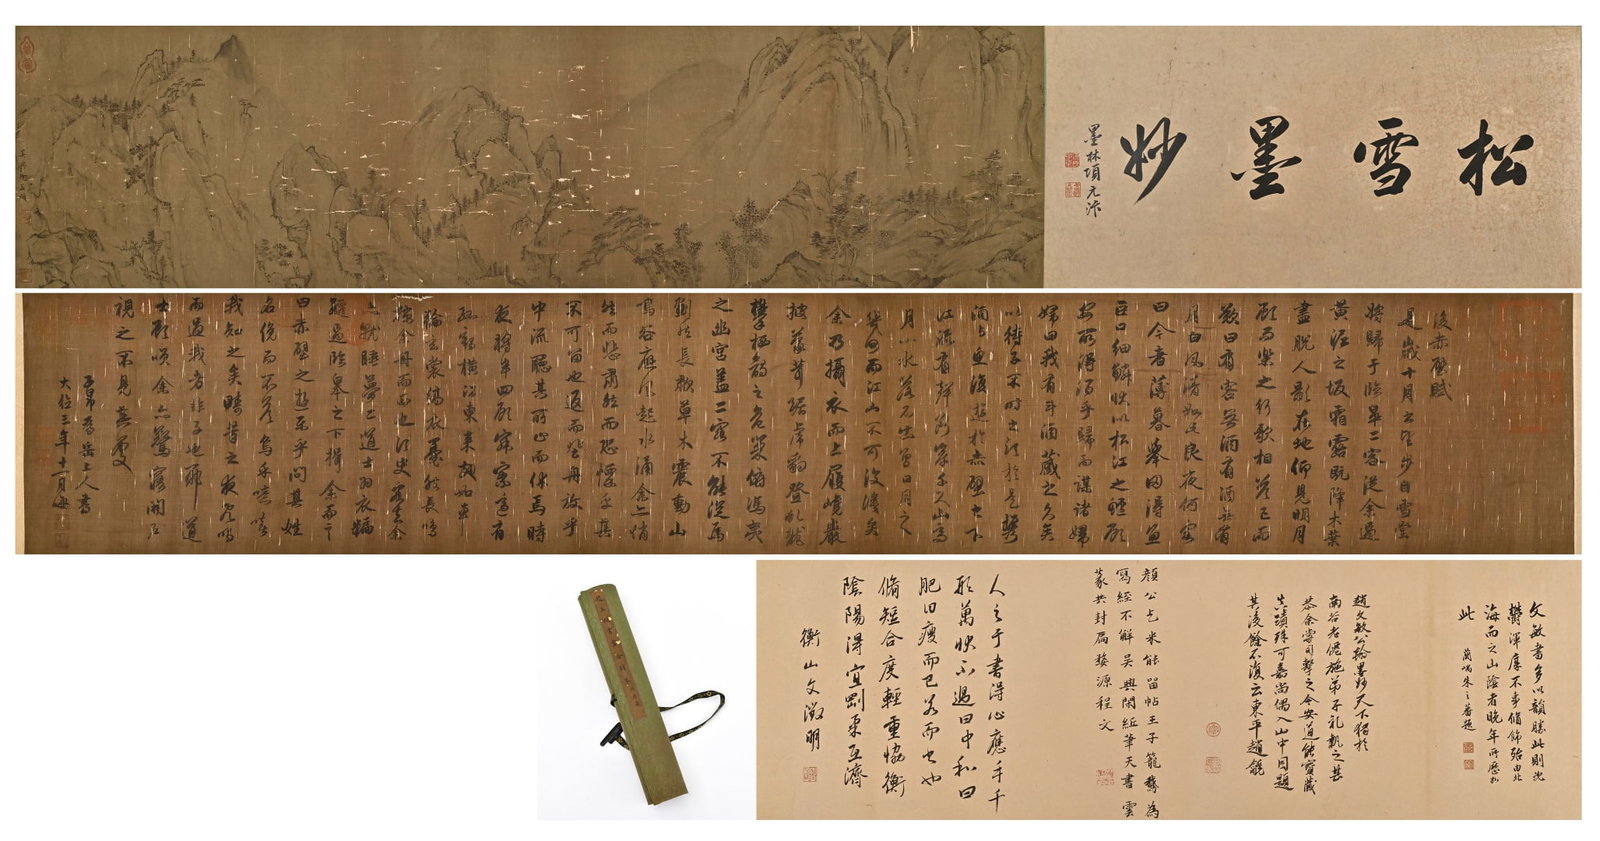 松雪墨妙
墨林項元汴
後赤壁賦
是歲十月之望步自雪堂
將歸于臨皋二客從余過
黃泥之坂霜露既降木葉
盡脫人影在地仰見明月
顧而樂之行歌相答已而
歎曰有客無酒有酒無肴
月白風清如此良夜何客
曰今者薄暮舉網得魚
巨口細鱗狀似松江之鱸顧
安所得酒乎歸而謀諸婦
婦曰我有斗酒藏之久矣
以待子不時之須於是攜
酒與魚復遊於赤壁之下
江流有聲斷岸千尺山高
月小水落石出曾日月之
幾何而江山不可復識矣
余乃攝衣而上履巉巖
披蒙茸踞虎豹登虬龍
攀栖鶻之危巢俯馮夷
之幽宮蓋二客不能從焉
劃然長嘯草木震動山
鳴谷應風起水涌余亦悄
然而悲肅然而恐懔乎其
不可留也返而登舟放乎
中流聽其所止而休焉時
夜將半四顧寂寥適有
孤鶴橫江東來翅如車
輪玄裳縞衣戛然長鳴
掠余舟而西也須臾客去余
亦就睡夢二道士羽衣蹁
躚過臨皋之下揖余而言
曰赤壁之遊樂乎問其姓
名俛而不答嗚呼噫嘻
我知之矣疇昔之夜飛鳴
而過我者非子也耶道
士顧笑余亦驚寤開戶
視之不見其處
子昂為岳上人書
大德三年十一月
文敏書多以韻勝此則沈
鬱渾厚不事脩飾殆由北
海而之山陰者晚年所歷如
此
蘭嵎朱之蕃題
趙文敏公翰墨妙天下獨於
南谷老僊施弟子礼執之甚
恭余嘗司擊之今安道能寶藏
真蹟殊可嘉尚偶入山中因題
其後餘不復云東平趙
顏公乞米能留帖王子籠鵝為
寫經不解吳興閑紙筆天書雲
篆共封扃婺源程文
人之于書得心應手千
形萬狀不過曰中和曰
肥曰瘦而已若而書也
脩短合度輕重恊衡
陰陽得宜剛柔互濟
衡山文徵明